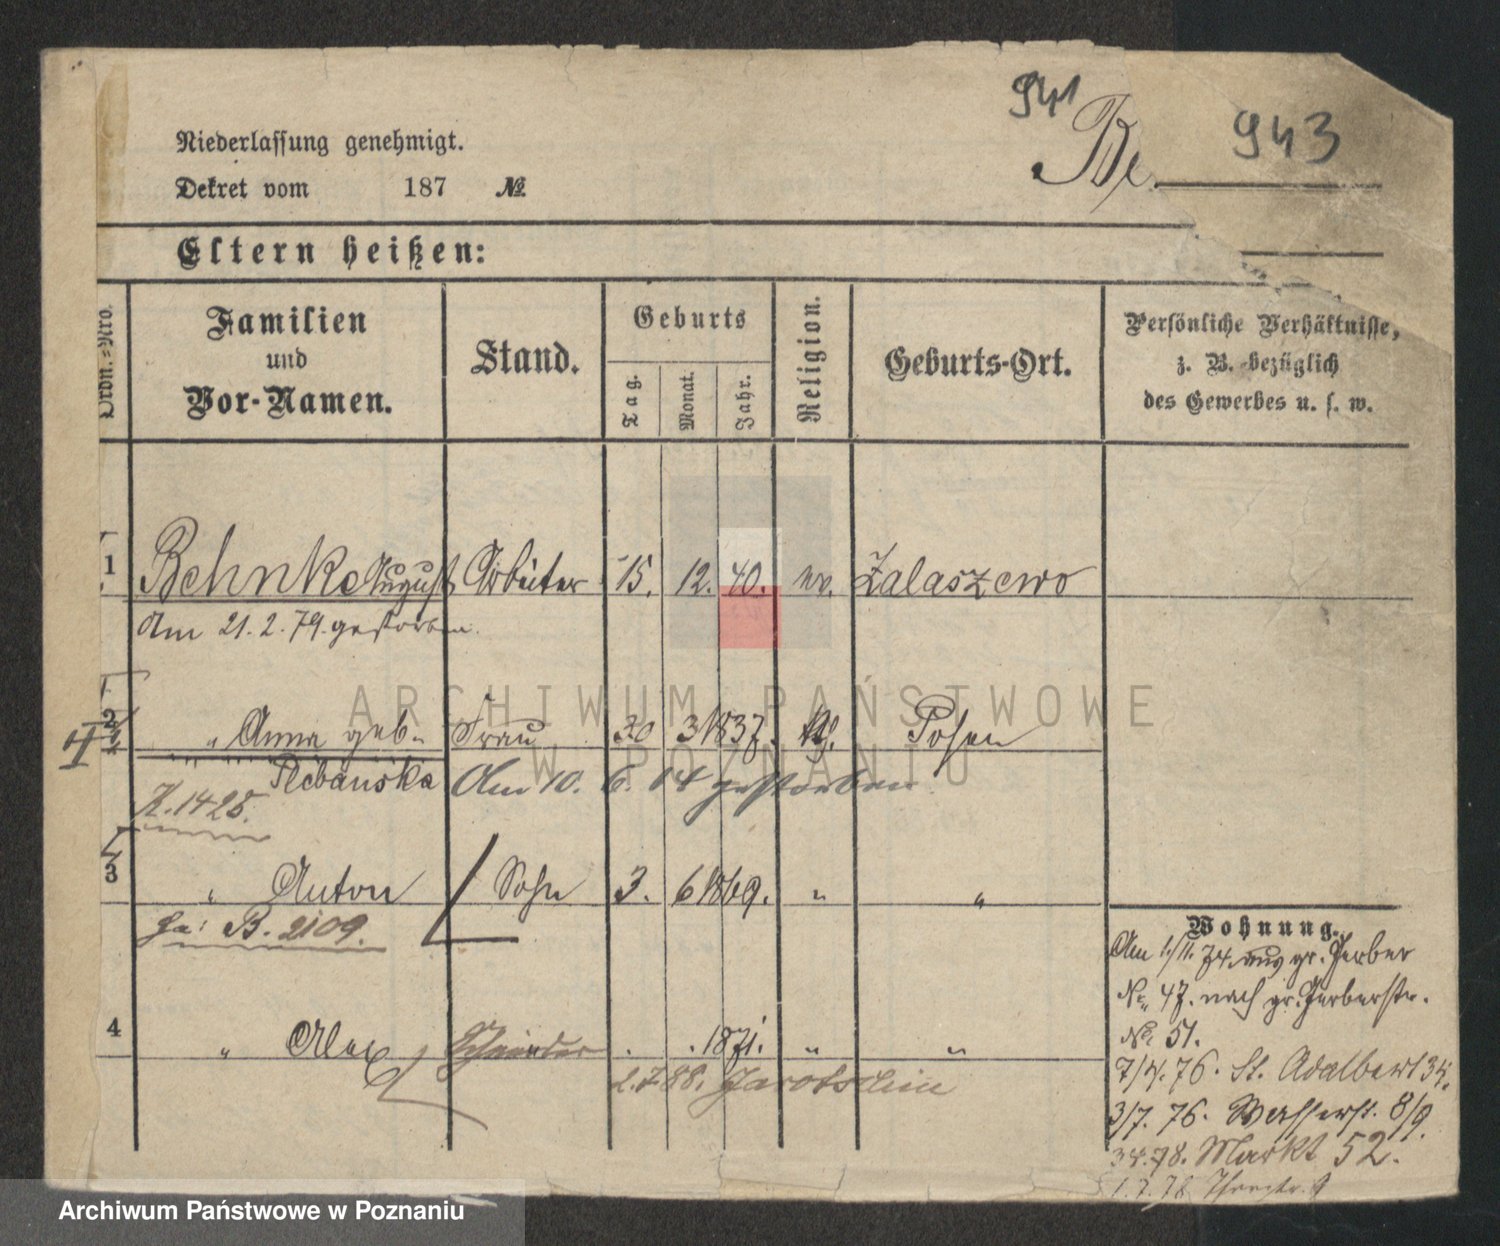 941
943
Be
Niederlassung genehmigt.
Dekret vom 187 №
Eltern heißen:
Ordn.=Nro.
Familien
und
Vor-Namen.
Stand.
Geburts
Tag.
Monat.
Jahr.
Religion.
Geburts-Ort.
Persönliche Verhältnisse,
z. B. bezüglich
des Gewerbes u. s. w.
1 Behnke August Arbeiter 15. 12. 40. ev. Zalaszewo
Am 21. 2. 79. gestorben.
2 " Anna geb. Frau 20 3 1837. Posen
Plebańska Am 10. 6. 14 gestorben
K. 1425.
3 " Anton Sohn 3. 6 1869. " "
B. 2109.
4 " Alex . . 1871. " "
2.7.88. Jarotschin
Wohnung.
Am 1./11. 74. aus gr. Gerber
No. 47. nach gr. Gerberstr.
No. 51.
7/4. 76. St. Adalbert 34.
3/7. 76. Wasserst. 8/9.
Markt 52.
1. 7. 78
ARCHIWUM PAŃSTWOWE
W POZNANIU
Archiwum Państwowe w Poznaniu